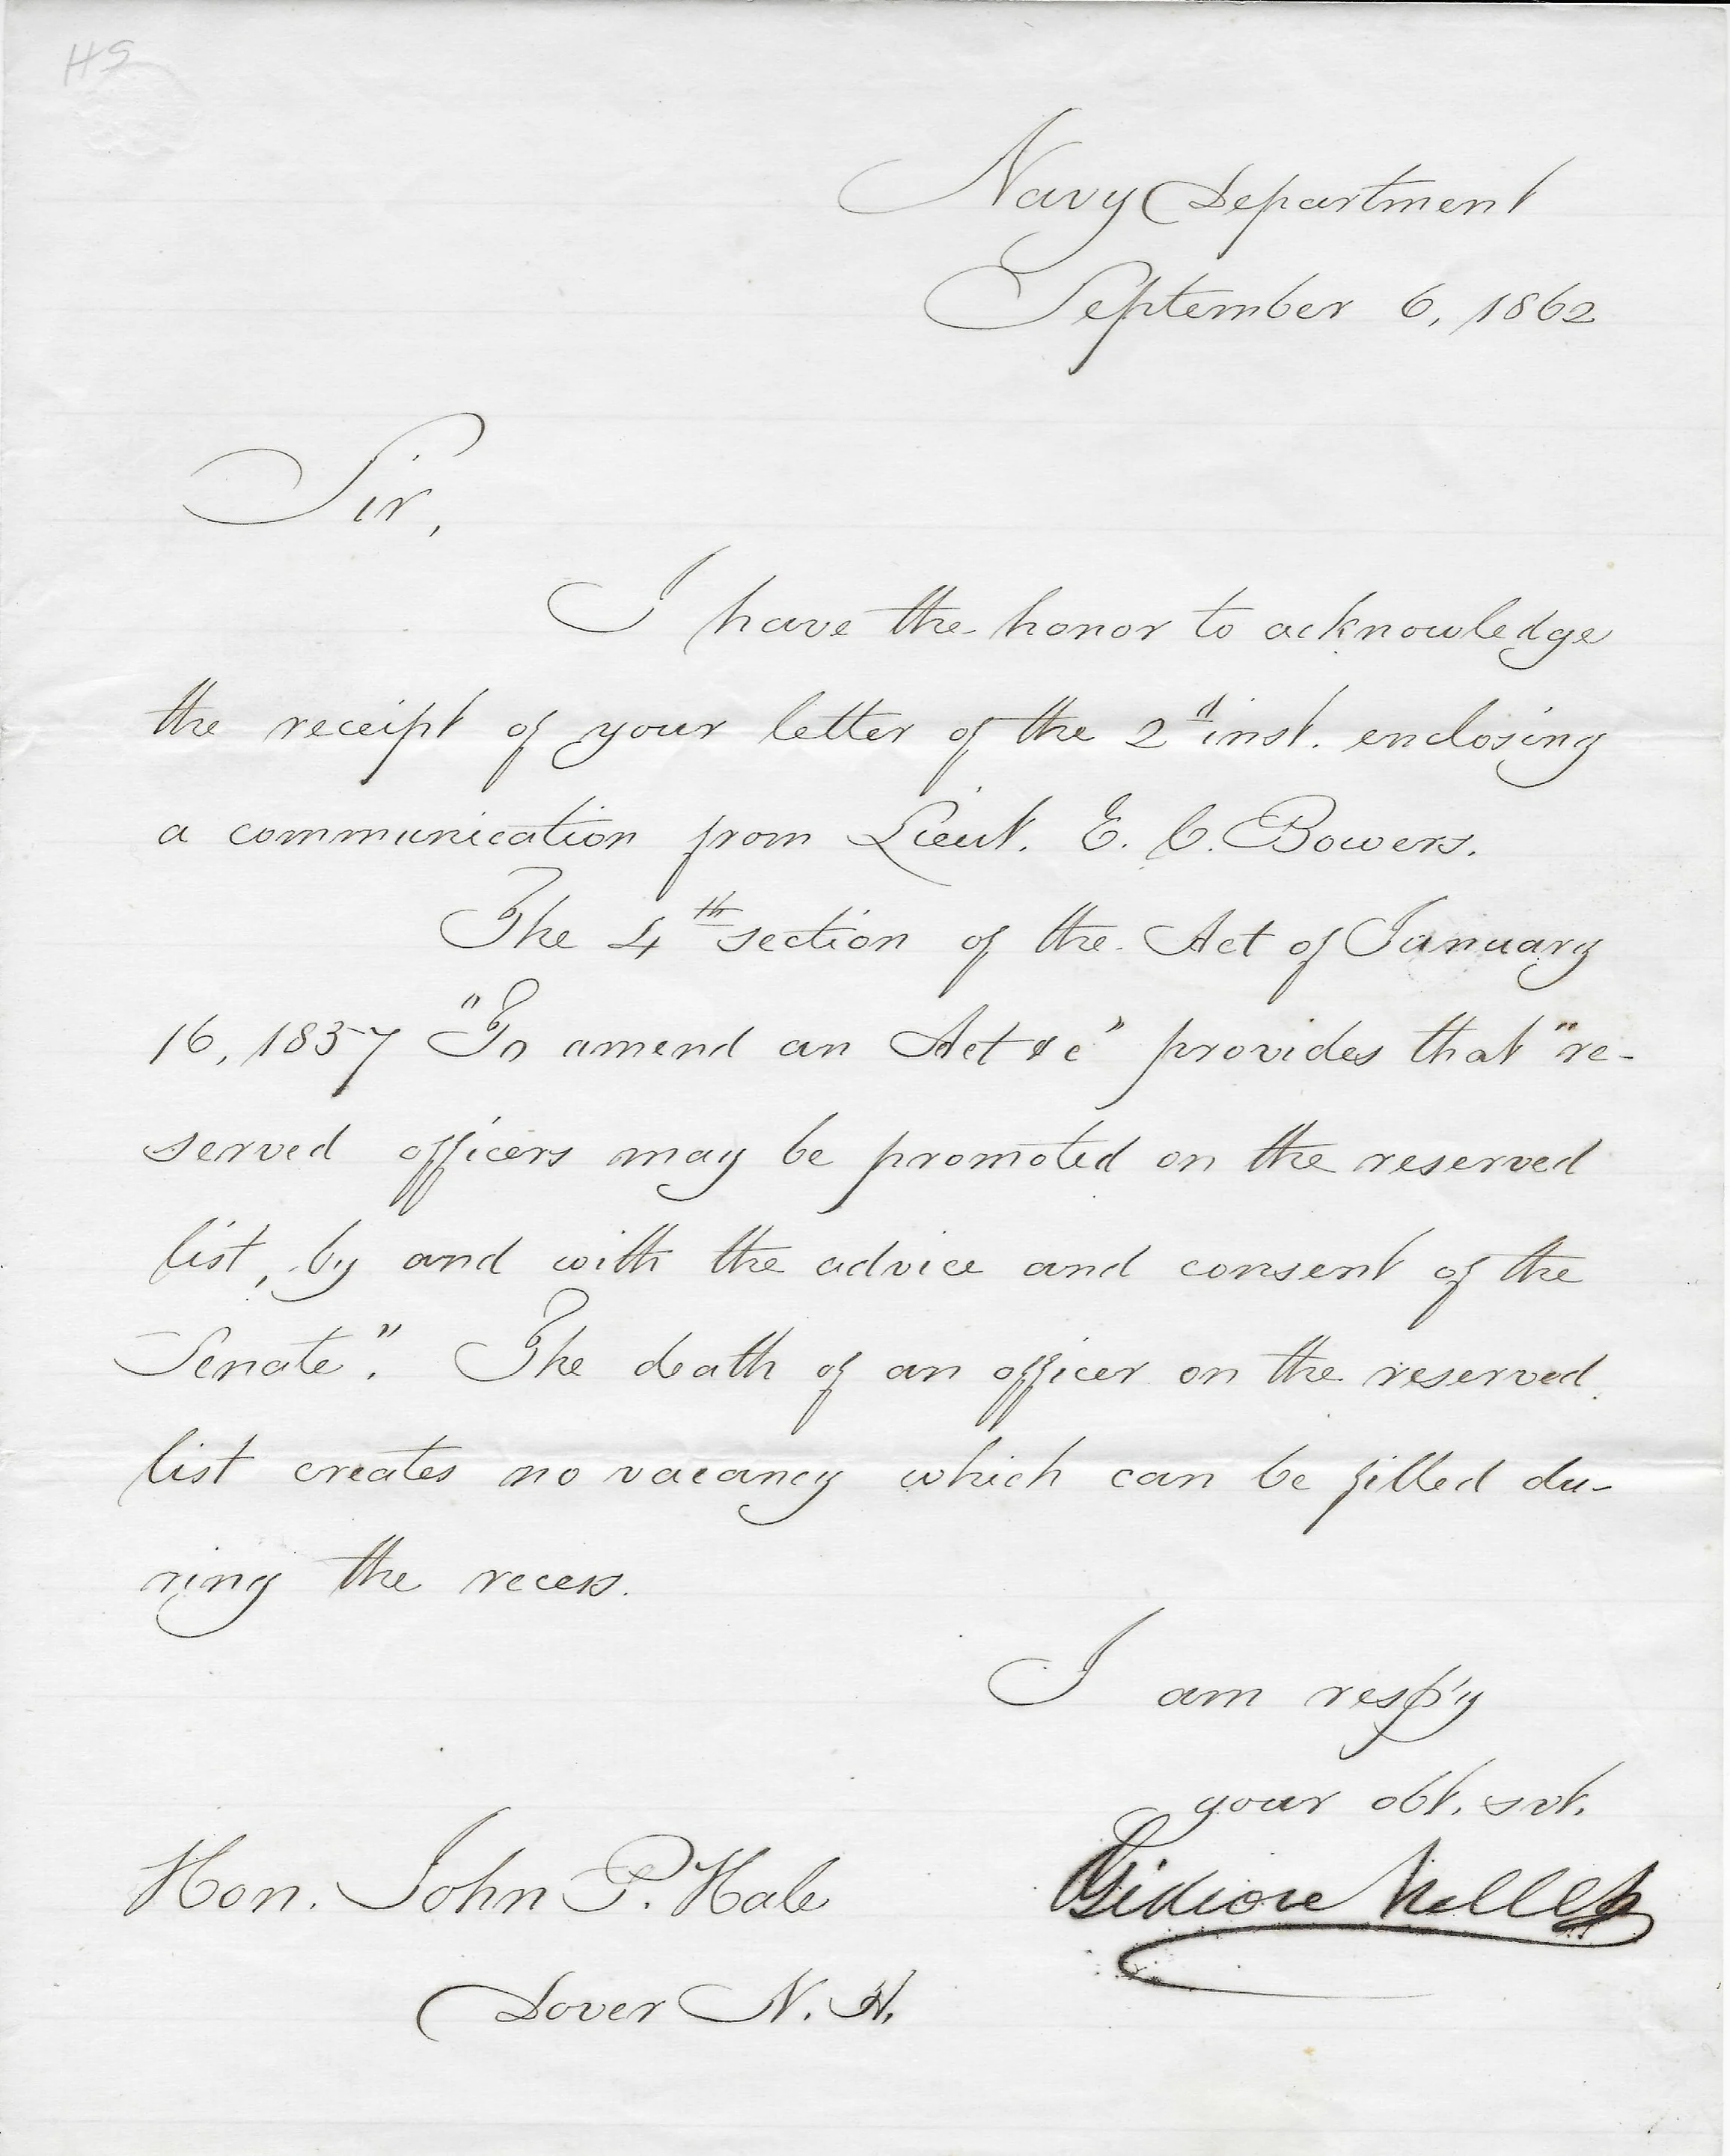 HS
Navy Department
September 6, 1862
Sir,
I have the honor to acknowledge
the receipt of your letter of the 2d inst. enclosing
a communication from Lieut. E. C. Bowers.
The 4th section of the Act of January
16, 1857 "To amend an Act &c" provides that "re-
served officers may be promoted on the reserved
list, by and with the advice and consent of the
Senate". The death of an officer on the reserved
list creates no vacancy which can be filled du-
ring the recess.
I am resp'y
your obt. svt.
Gideon Welles
Hon. John P. Hale
Dover N. H.